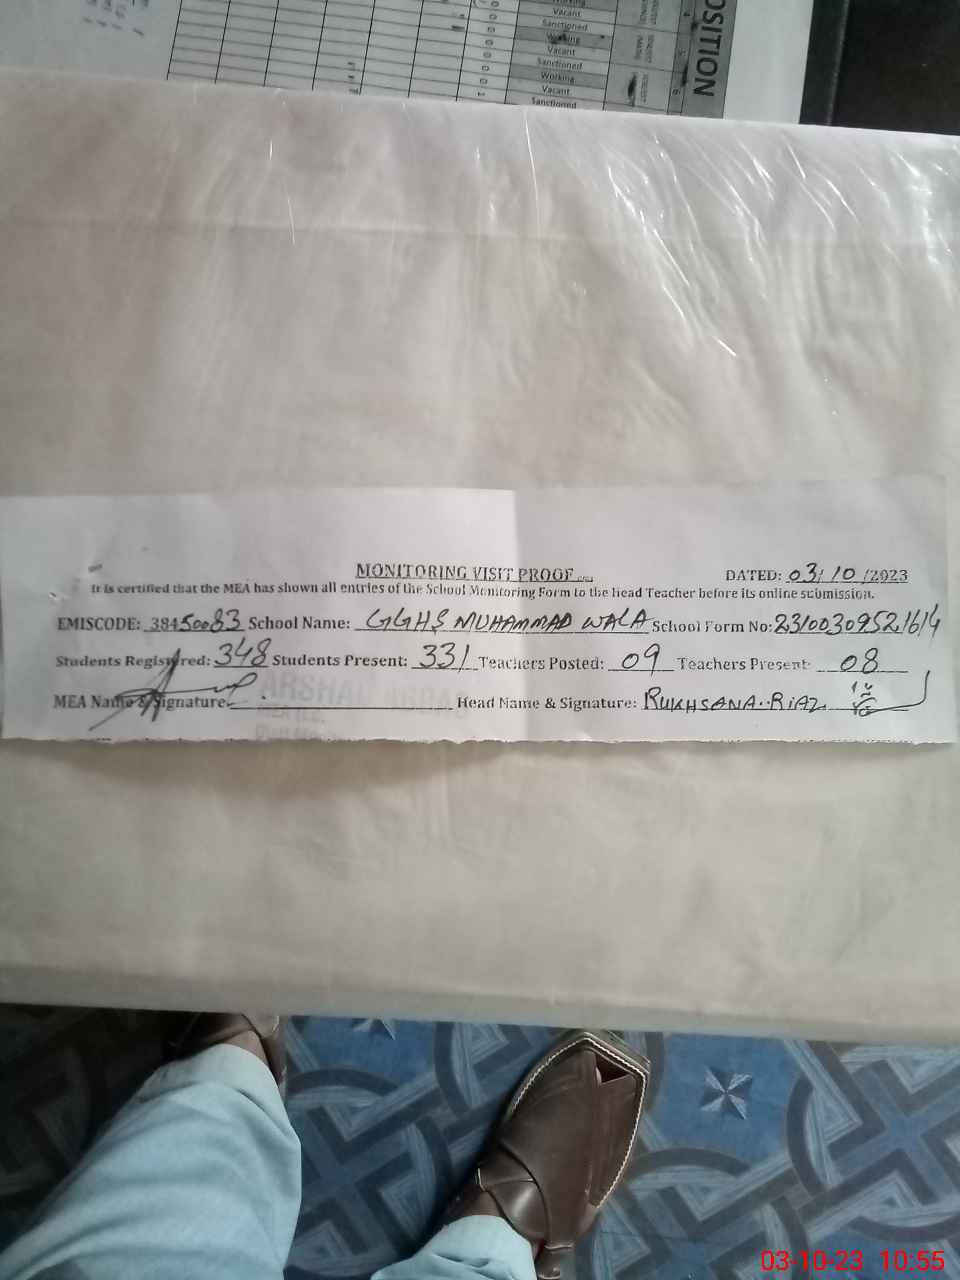 POSITION
Working
Vacant
Sanctioned
Working
Vacant
Sanctioned
Working
Vacant
Sanctioned
MONITORING VISIT PROOF
DATED: 03/10/2023
It is certified that the MEA has shown all entries of the School Monitoring Form to the head Teacher before its online submission.
EMISCODE: 38450083 School Name: GGHS MUHAMMAD WALA School Form No: 23100309521614
Students Registered: 348 Students Present: 331 Teachers Posted: 09 Teachers Present: 08
MEA Name & Signature: Head Name & Signature: RUKHSANA RIAZ
ARSHAD
03-10-23 10:55